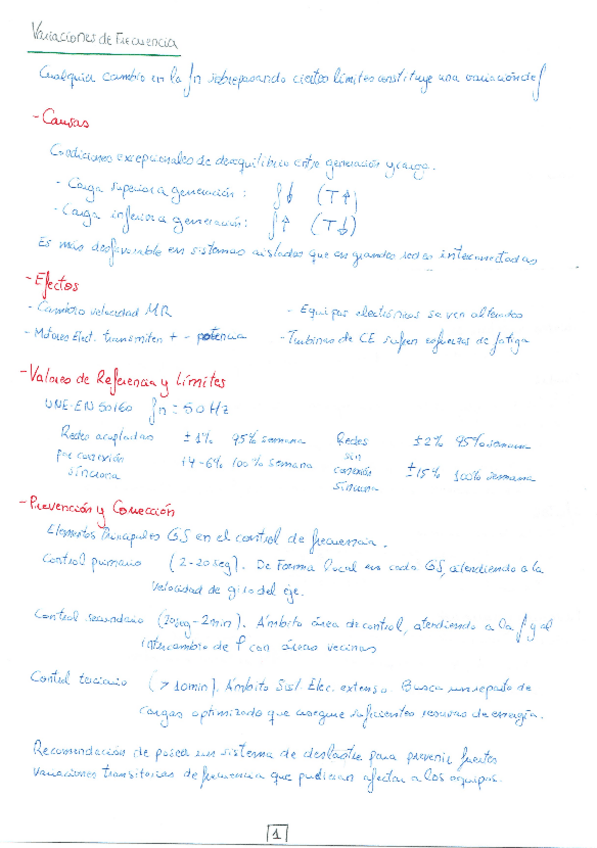 Variaciones de Frecuencia
Cualquier cambio en la fn sobrepasando ciertos límites constituye una variación de f
- Causas
Condiciones excepcionales de desequilibrio entre generación y carga.
- Carga superior a generación: f↓ (T↑)
- Carga inferior a generación: f↑ (T↓)
Es más desfavorable en sistemas aislados que en grandes redes interconectadas
- Efectos
- Cambio velocidad MR - Equipos electrónicos se ven alterados
- Motores Elect. transmiten + - potencia - Turbinas de CE sufren esfuerzos de fatiga
- Valores de Referencia y Límites
UNE-EN 50160 fn = 50 Hz
Redes acopladas ±1% 95% semana Redes ±2% 95% semana
por conexión +4 -6% 100% semana sin conexión ±15% 100% semana
síncrona síncrona
- Prevención y Corrección
Elementos Principales GS en el control de frecuencia.
Control primario (2-20seg). De Forma local en cada GS, atendiendo a la
velocidad de giro del eje.
Control secundario (20seg-2min). Ámbito área de control, atendiendo a la f y al
intercambio de P con áreas vecinas
Control terciario (>10min). Ámbito Sist. Elec. extenso Busca un reparto de
cargas optimizado que asegure suficientes reservas de energía.
Recomendación de poseer un sistema de deslastre para prevenir fuertes
variaciones transitorias de frecuencia que pudieran afectar a los equipos.
1